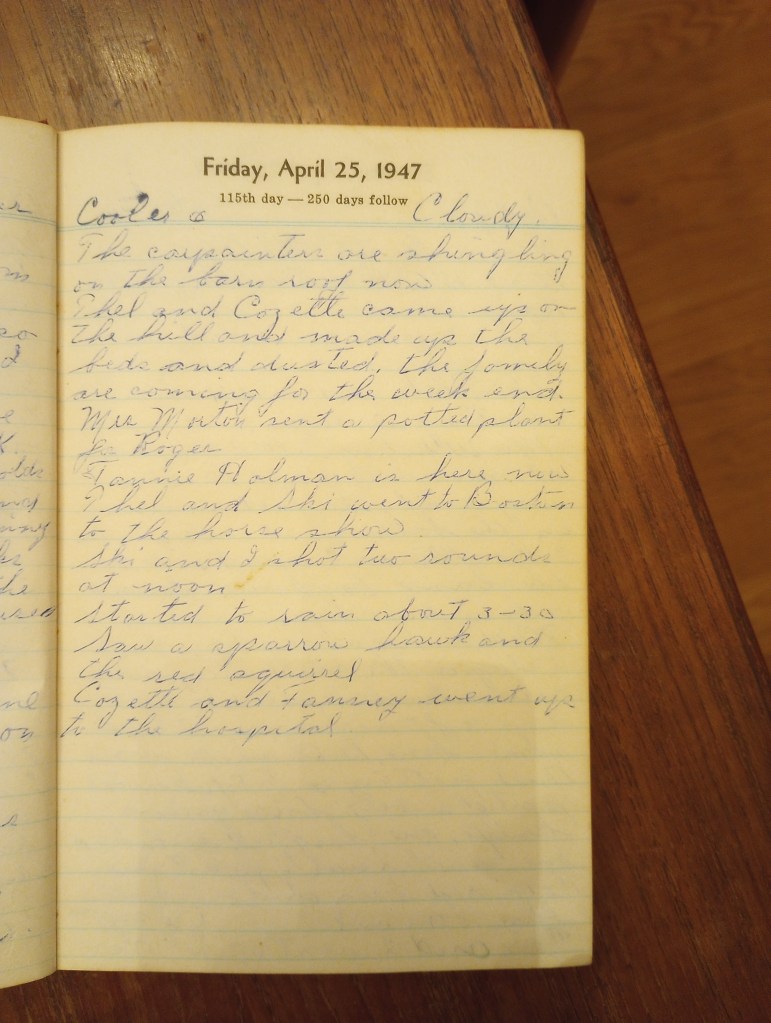 Friday, April 25, 1947
115th day — 250 days follow
Cooler Cloudy.
The carpainters are shingling
on the barn roof now
Thel and Cozette came up on
the hill and made up the
beds and dusted. the family
are coming for the week end.
Mrs Morton sent a potted plant
for Roger
Fannie Holman is here now
Thel and Ski went to Boston
to the horse show.
Ski and I shot two rounds
at noon
Started to rain about 3-30
Saw a sparrow hawk and
the red squirrel
Cozette and Fanney went up
to the hospital